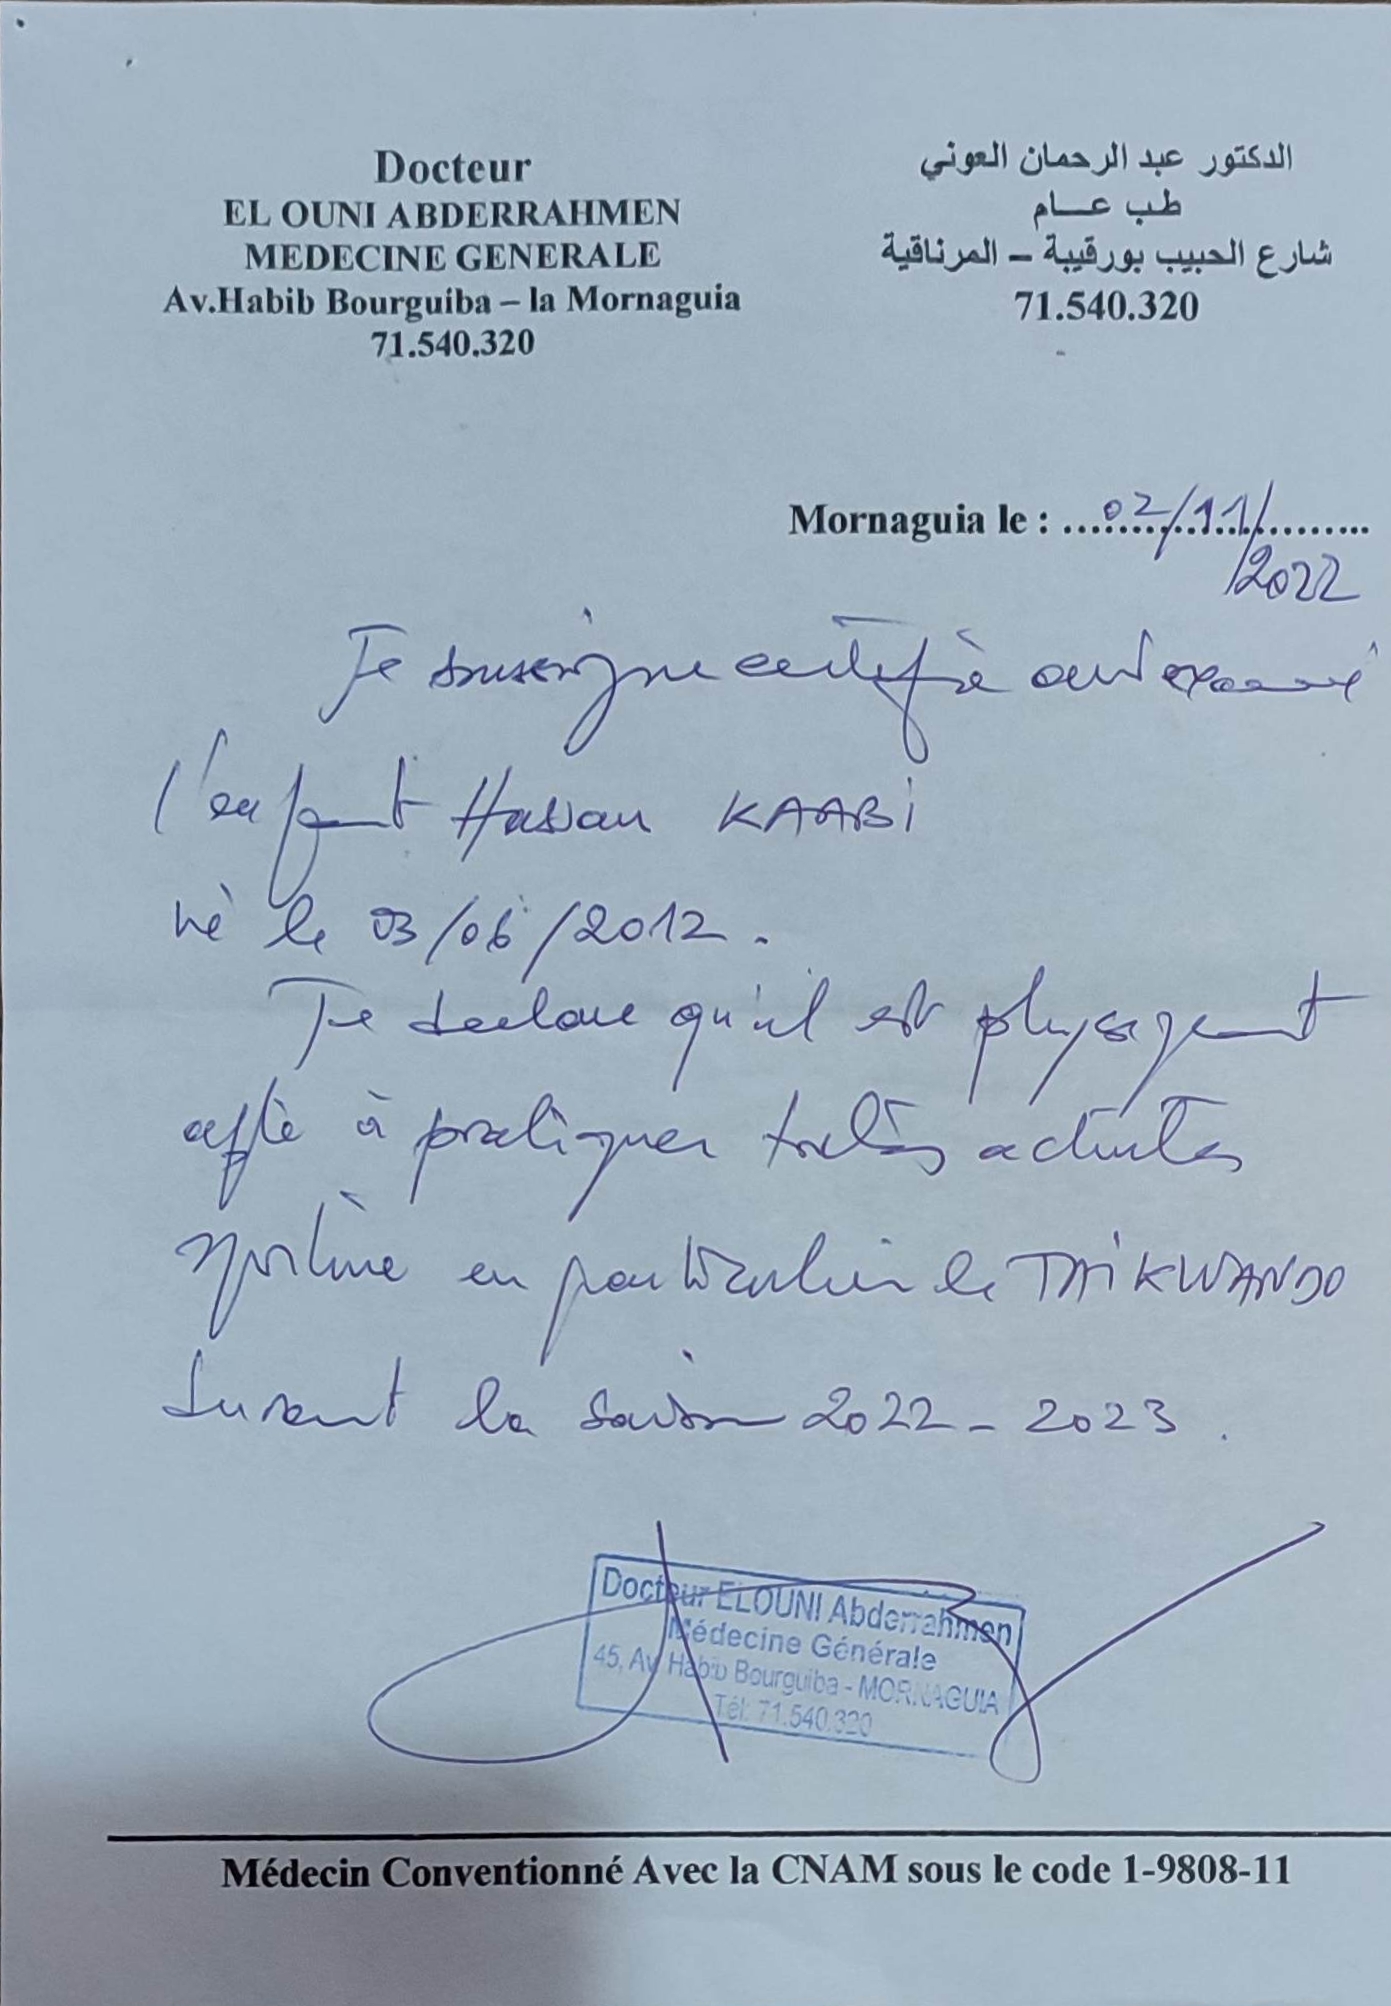 Docteur
EL OUNI ABDERRAHMEN
MEDECINE GENERALE
Av.Habib Bourguiba – la Mornaguia
71.540.320
الدكتور عبد الرحمان العوني
طب عــام
شارع الحبيب بورقيبة – المرناقية
71.540.320
Mornaguia le : 02/11/
/2022
Je soussigné certifie avoir examiné
l'enfant Hassan KAABI
né le 03/06/2012.
Je declare qu'il est physiquement
apte à pratiquer toutes activités
sportive en particulier le TAIKWANDO
durant la saison 2022 - 2023.
Docteur ELOUNI Abderrahmen
Médecine Générale
45, Av Habib Bourguiba - MORNAGUIA
Tél: 71.540.320
Médecin Conventionné Avec la CNAM sous le code 1-9808-11